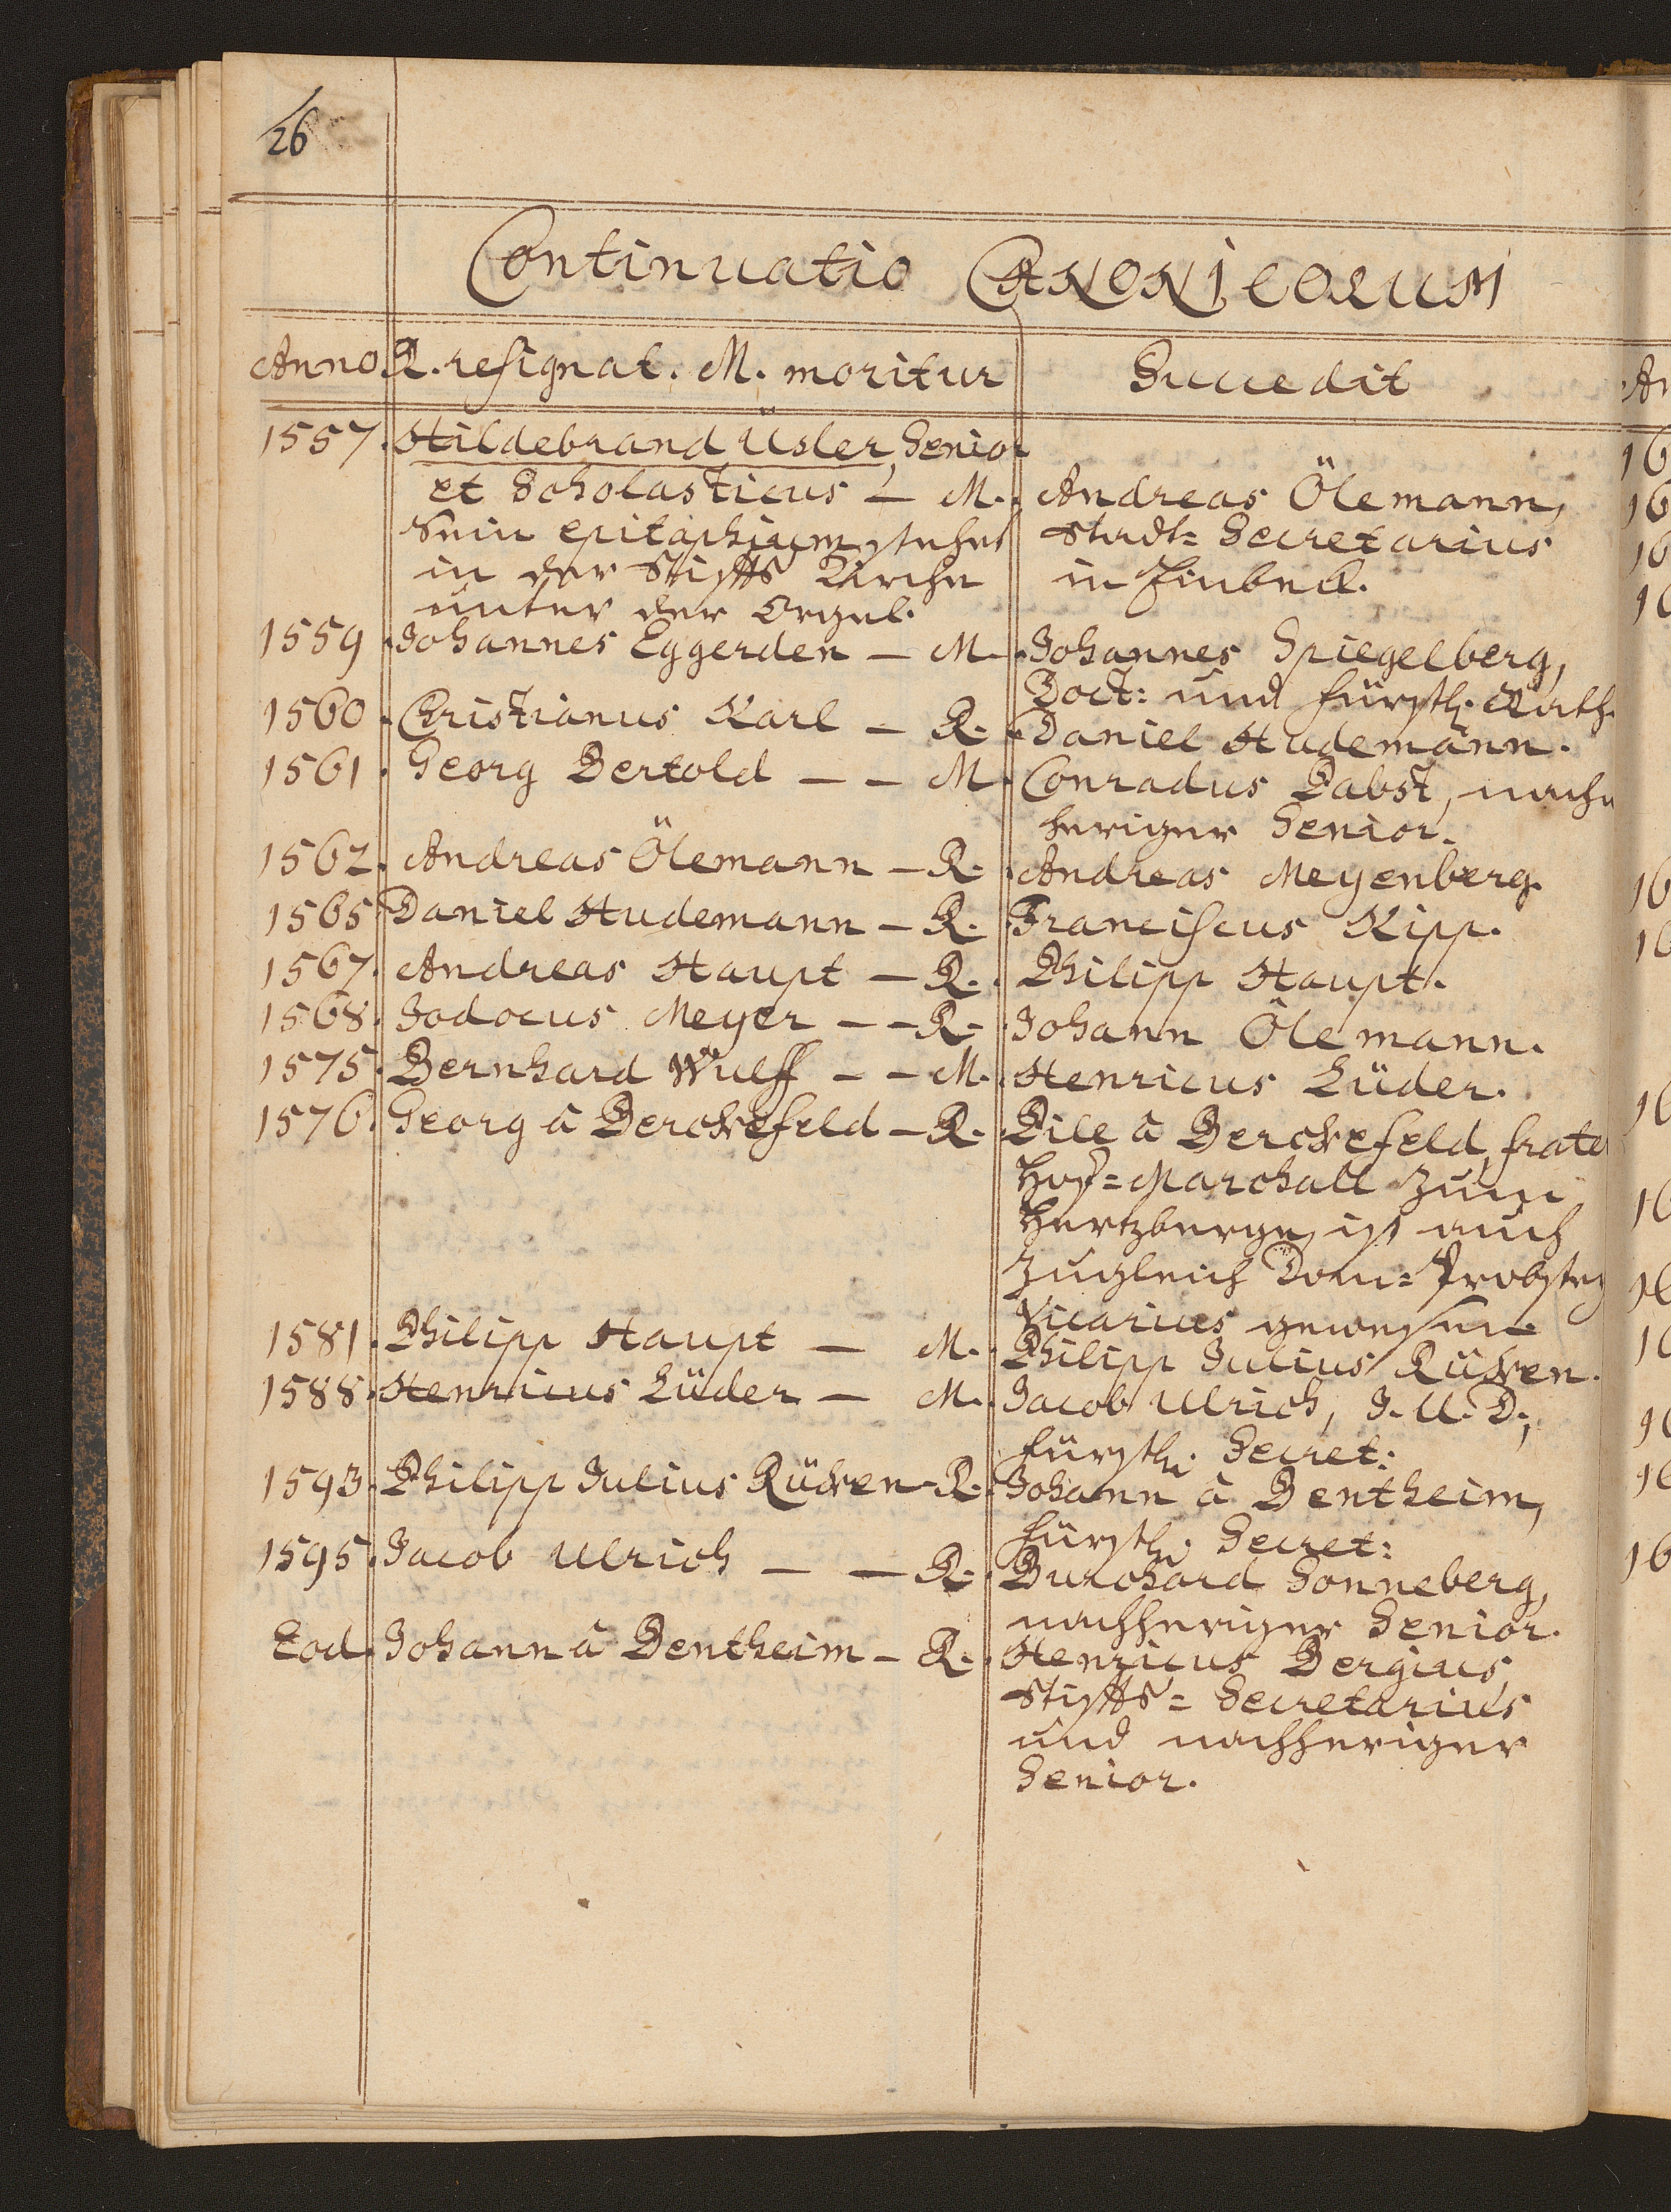 26
Continuatio CANONICORUM
Anno R. resignat. M. moritur Succedit
1557. Hildebrand Üsler, Senior
et Scholasticus — M. Andreas Ölemann,
Sein epitaphium stehet Stadt= Secretarius
in der Stiffts Kirche in Einbeck.
unter der Orgel.
1559. Johannes Eggerden — M. Johannes Spiegelberg,
Doct: und fürstl. Rath.
1560. Christianus Karl — R. Daniel Hudemann.
1561. Georg Bertold — — M. Conradus Pabst, nach
heriger Senior.
1562. Andreas Ölemann — R. Andreas Meyenberg.
1565. Daniel Hudemann — R. Franciscus Kipp.
1567. Andreas Haupt — R. Philipp Haupt.
1568. Jodocus Meyer — — R. Johann Ölemann.
1575. Bernhard Wulff — — M. Henricus Lüder.
1576. Georg à Berckefeld — R. Dile à Berckefeld, frater
Hof= Marchall zum
Hertzberge, ist auch
zugleich Dom= Probstey
Vicarius gewesen.
1581. Philipp Haupt — M. Philipp Julius Rücken.
1588. Henricus Lüder — M. Jacob Ulrich, J. U. D.,
fürstl. Secret:
1593. Philipp Julius Rücken — R. Johann à Bentheim,
fürstl. Secret:
1595. Jacob Ulrich — — R. Burchard Sonneberg,
nachheriger Senior.
Eod. Johann à Bentheim — R. Henricus Bergius,
Stiffts= Secretarius
und nachheriger
Senior.